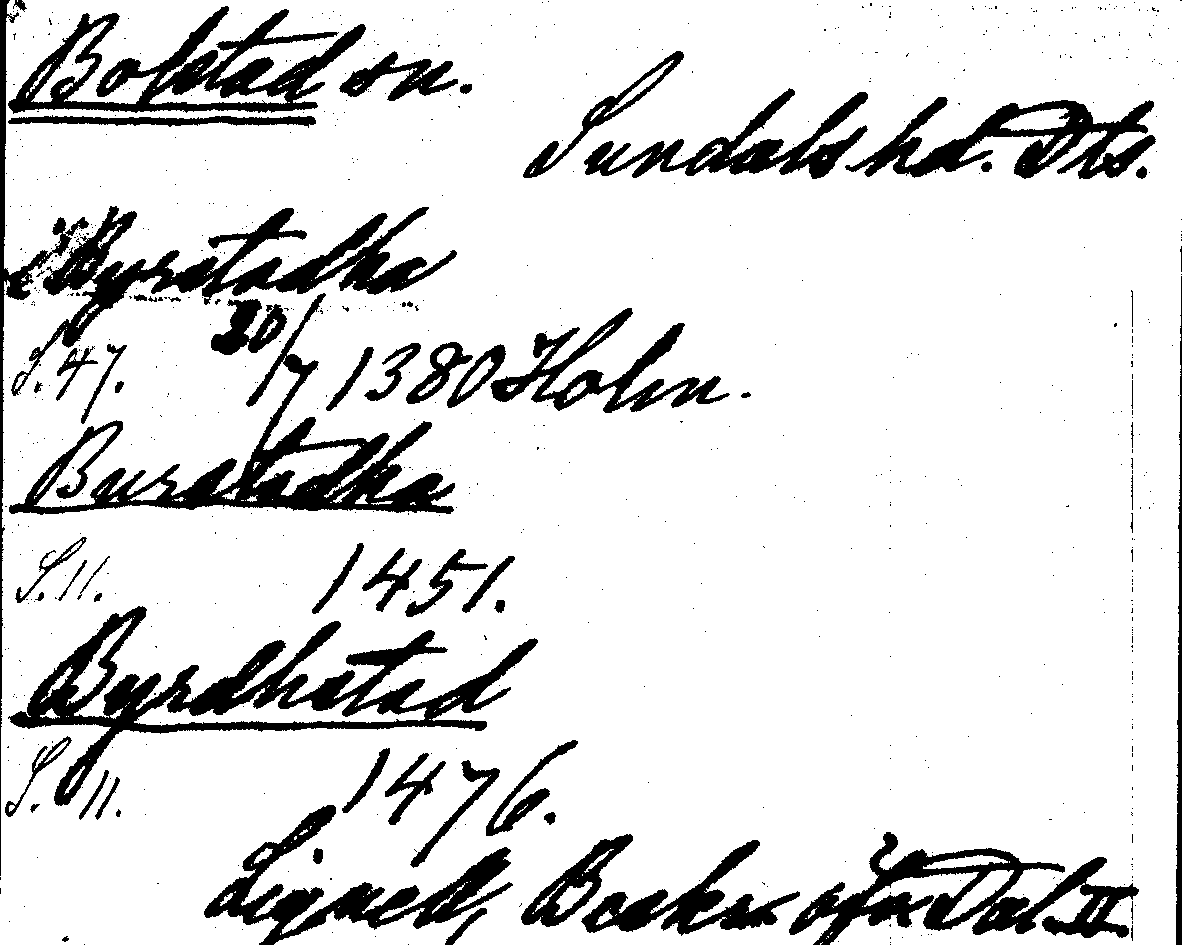 Bolstad sn.
Sundals hd. Dls.
i Byrstadha
S. 47. 20/7 1380 Holm.
Burstadha
S. 11. 1451.
Byrdhstad
S. 11. 1476.
Lignell, Beskr. öfv. Dal. II.